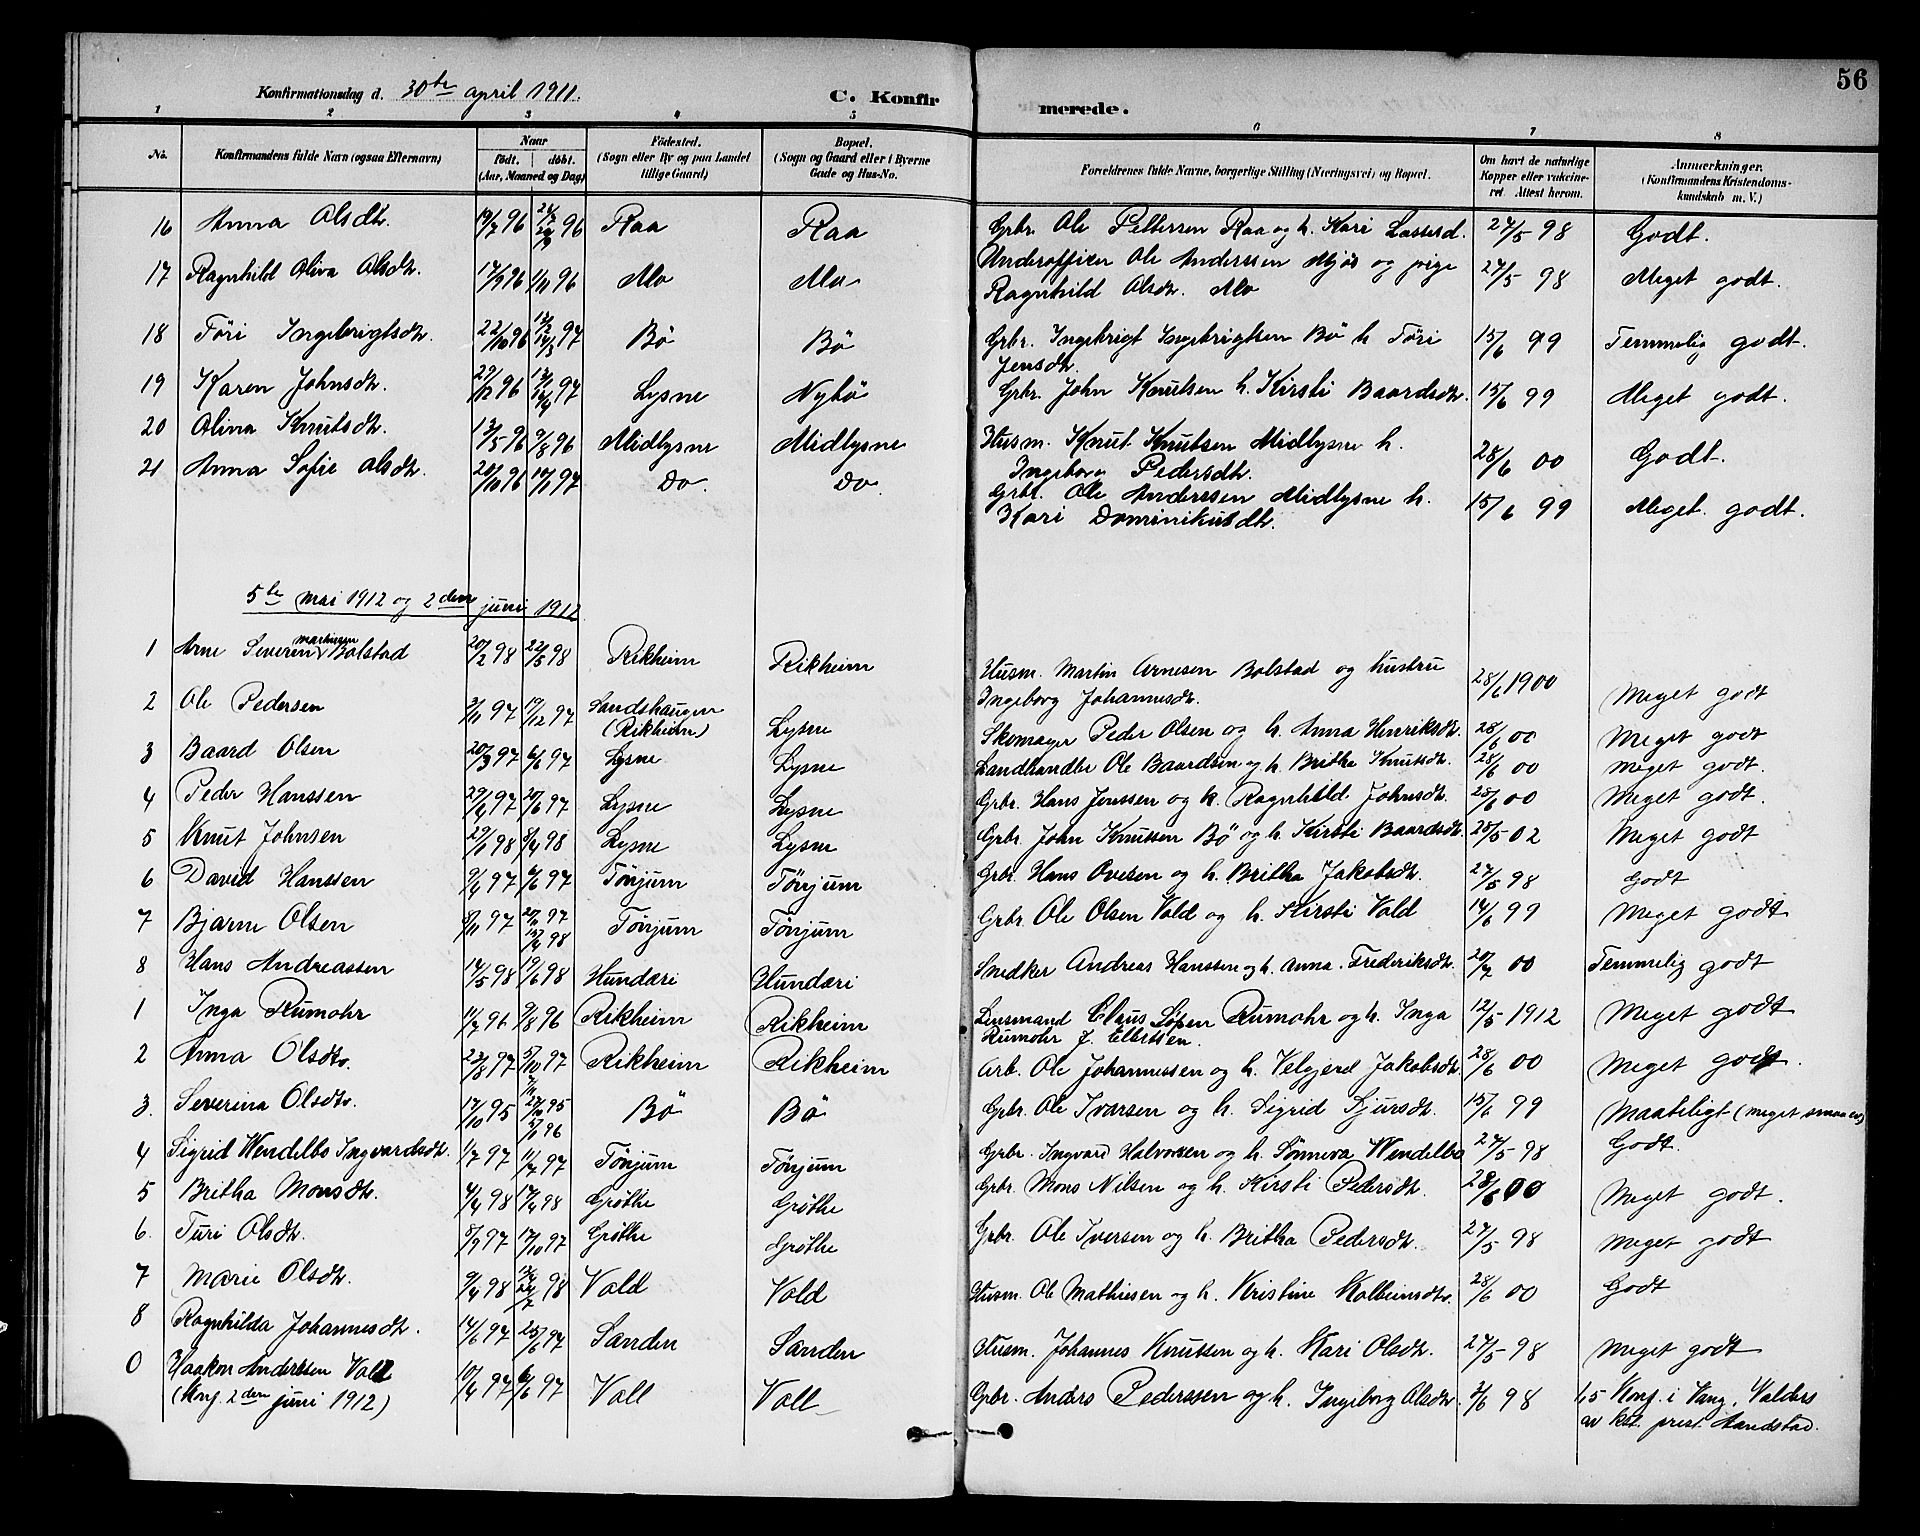 56
Konfirmationsdag d. 30te april 1911. C. Konfirmerede.
1 2 3 4 5 6 7 8
No. Konfirmandens fulde Navn (ogsaa Efternavn) Naar født. døbt. (Aar, Maaned og Dag) Fødested. (Sogn eller By og paa Landet tillige Gaard) Bopæl. (Sogn og Gaard eller i Byerne Gade og Hus-No. Forældrenes fulde Navne, borgerlige Stilling (Næringsvei) og Bopæl. Om havt de naturlige Kopper eller vakcineret. Attest herom. Anmærkninger. (Konfirmandens Kristendomskundskab m. V.)
16 Anna Olsdtr. 19/7 96 Raa Raa Grbr. Ole Pettersen Raa og h. Kari Lassesd. 27/5 98 Godt.
17 Ragnhild Oliva Olsdtr. 17/9 96 1/11 96 Mo Mo Underofficer Ole Anderssen Mjøs og pige
Ragnhild Olsdtr. Mo 27/5 98 Meget godt.
18 Töri Ingebrigtsdtr. 22/10 96 Bö Bö Grbr. Ingebrigt Ingebrigtsen Bö h Töri
Jensdtr. 15/6 99 Temmelig godt.
19 Karen Johnsdtr. 29/12 96 Lysne Nybö Grbr. John Knutsen h. Kirsti Baardsdtr. 15/6 99 Meget godt.
20 Olina Knutsdtr. 13/5 96 9/8 96 Midlysne Midlysne Husm. Knut Knutsen Midlysne h.
Ingeborg Pedersdtr. 28/6 00 Godt.
21 Anna Sofie Olsdtr. 20/10 96 10/1 97 Do. Do. Grbr. Ole Anderssen Midlysne h.
Kari Dominikusdtr. 15/6 99 Meget godt.
5te mai 1912 og 2den juni 1912
1 Arne Severin Martinsen Bolstad 20/2 98 22/5 98 Rikheim Rikheim Husm. Martin Arnesen Bolstad og hustru
Ingeborg Johannesdtr. 28/6 1900 Meget godt
2 Ole Pedersen 3/11 97 19/12 97 Sandshaugen
(Rikheim) Lysne Skomager Peder Olsen og h. Anna Henriksdtr. 28/6 00 Meget godt
3 Baard Olsen 20/3 97 6/6 97 Lysne Lysne Landhandler Ole Baardsen og h. Britha Knutsdtr. 28/6 00 Meget godt.
4 Peder Hanssen 29/4 97 20/6 97 Lysne Lysne Grbr. Hans Jenssen og h. Ragnhild Johnsdtr. 28/6 00 Meget godt.
5 Knut Johnsen 29/1 98 8/4 98 Lysne Lysne Grbr. John Knutsen Bö og h. Kirsti Baardsdtr. 25/5 02 Meget godt
6 David Hanssen 9/4 97 6/6 97 Tönjum Tönjum Grbr. Hans Ovesen og h. Britha Jakobsdtr. 27/5 98 Godt
7 Bjarne Olsen 8/11 97 20/11 97 Tönjum Tönjum Grbr. Ole Olsen Vold og h. Kirsti Vold 14/6 99 Meget godt
13/4 98
8 Hans Andreassen 14/5 98 19/6 98 Hundæri Hundæri Snedker Andreas Hanssen og h. Anna Frederiksdtr. 20/7 00 Temmelig godt
1 Inga Rumohr 11/7 96 9/8 96 Rikheim Rikheim Lensmand Claus Rumohr og h. Inga
Rumohr f. Ellertsen. 12/5 1912 Meget godt
2 Anna Olsdtr. 23/8 97 5/10 97 Rikheim Rikheim Arb. Ole Johannessen og h. Velgjerd Jakobsdtr. 28/6 00 Meget godt.
3. Severina Olsdtr. 17/10 95 Bö Bö Grbr. Ole Ivarsen og h. Sigrid Sjursdtr. 15/6 99 Maateligt (meget smaaev)
4 Sigrid Wendelbo Ingvardsdtr. 1/7 97 11/7 97 Tönjum Tönjum Grbr. Ingvard Halvorsen og h. Sönneva Wendelbo 27/5 98 Godt.
5 Britha Monsdtr. 4/4 98 17/4 98 Gröthe Gröthe Grbr. Mons Nilsen og h. Kirsti Pedersdtr. 28/6 00 Meget godt.
6. Turi Olsdtr. 8/9 97 17/10 97 Gröthe Gröthe Grbr. Ole Iversen og h. Britha Pedersdtr. 27/5 98 Meget godt
7 Marie Olsdtr. 9/4 98 Vold Vold Husm. Ole Mathiesen og h. Kristine Kolbeinsdtr. 28/6 00 Godt
8 Ragnhilda Johannesdtr. 14/6 97 25/6 97 Sanden Sanden Husm. Johannes Knutsen og h. Kari Olsdtr. 27/5 98 Meget godt
0 Haakon Anderssen Voll 10/4 97 6/6 97 Voll Voll Grbr. Anders Pederssen og h. Ingeborg Olsdtr. 3/6 98 Konf. i Vang, Valders
(Konf. 2den juni 1912) av kst. prest Aandstad.